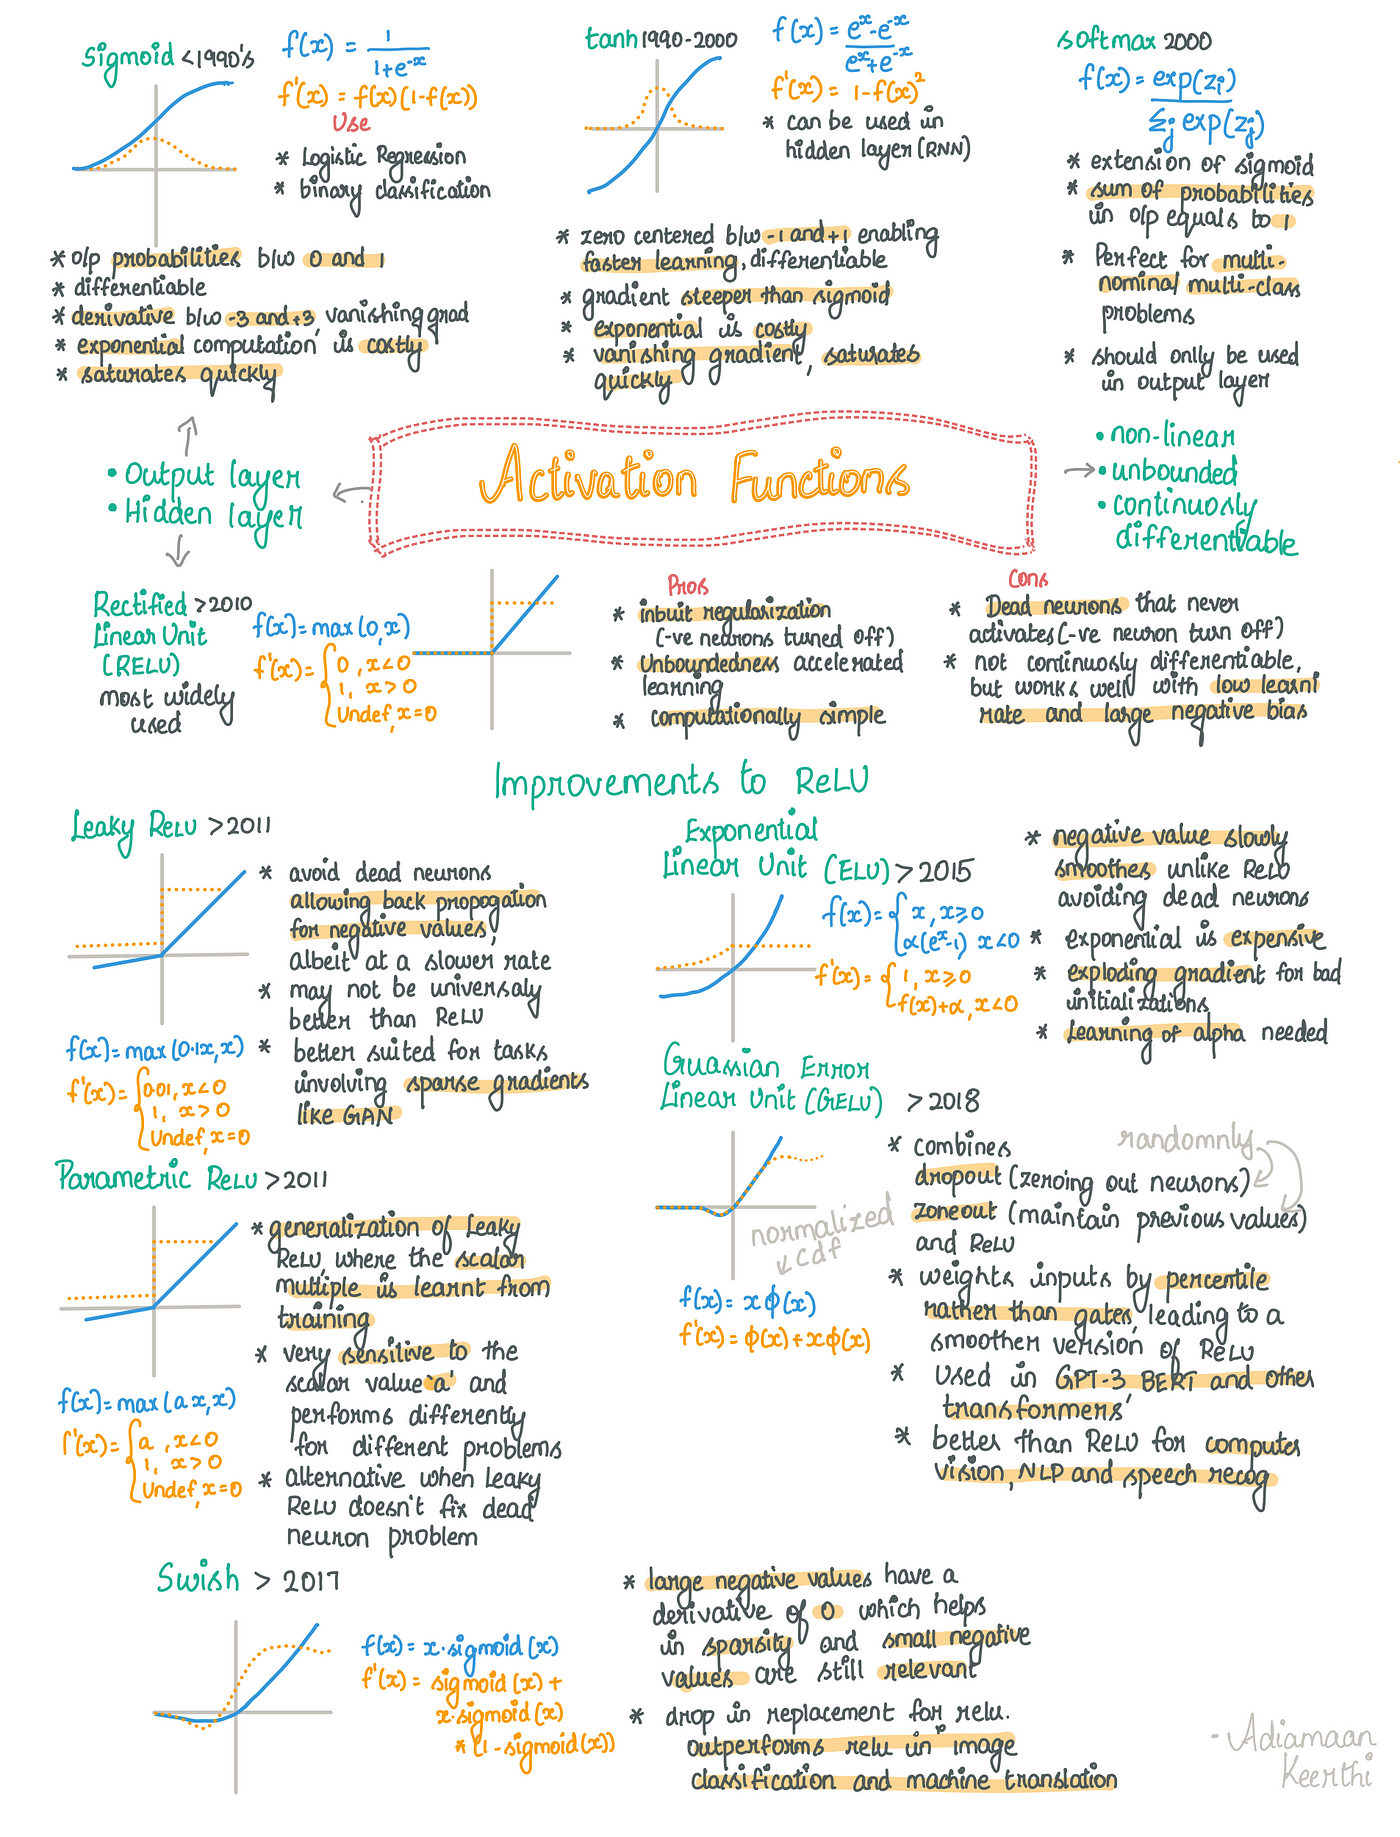 sigmoid <1990's
f(x) = 1
1+e^-x
f'(x) = f(x)(1-f(x))
Use
* Logistic Regression
* binary classification
* o/p probabilities b/w 0 and 1
* differentiable
* derivative b/w -3 and +3, vanishing grad
* exponential computation is costly
* saturates quickly
tanh 1990-2000
f(x) = e^x-e^-x
e^x+e^-x
f'(x) = 1-f(x)^2
* can be used in
hidden layer (RNN)
* zero centered b/w -1 and +1 enabling
faster learning, differentiable
* gradient steeper than sigmoid
* exponential is costly
* vanishing gradient, saturates
quickly
softmax 2000
f(x) = exp(zi)
Σj exp(zj)
* extension of sigmoid
* sum of probabilities
in o/p equals to 1
* Perfect for multi-
nominal multi-class
problems
* should onlly be used
in output layer
Activation Functions
• Output layer
• Hidden layer
• non-linear
• unbounded
• continuosly
differentiable
Rectified >2010
Linear Unit
(RELU)
most widely
used
f(x)=max(0,x)
f'(x)= { 0, x<0
1, x>0
Undef, x=0
Pros
* inbuit regularization
(-ve neurons turned off)
* Unboundedness accelerated
learning
* computationally simple
Cons
* Dead neurons that never
activates (-ve neuron turn off)
* not continuosly differentiable,
but works well with low learni
rate and large negative bias
Improvements to ReLU
Leaky ReLU >2011
* avoid dead neurons
allowing back propogation
for negative values,
albeit at a slower rate
* may not be universaly
better than ReLU
* better suited for tasks
involving sparse gradients
like GAN
f(x)=max(0.1x,x)
f'(x)= { 0.01, x<0
1, x>0
Undef, x=0
Parametric ReLU >2011
* generalization of Leaky
ReLU, where the scalar
multiple is learnt from
training
* very sensitive to the
scalar value 'a' and
performs differently
for different problems
* alternative when Leaky
ReLU doesn't fix dead
neuron problem
f(x)=max(ax,x)
f'(x)= { a, x<0
1, x>0
Undef, x=0
Exponential
Linear Unit (ELU) >2015
f(x)= { x, x≥0
α(e^x-1) x<0
f'(x)= { 1, x≥0
f(x)+α, x<0
* negative value slowly
smoothes unlike ReLU
avoiding dead neurons
* exponential is expensive
* exploding gradient for bad
initializations
* Learning of alpha needed
Guassian Error
Linear Unit (GELU) >2018
normalized
cdf
f(x)= xϕ(x)
f'(x)= ϕ(x)+xϕ(x)
randomnly
* combines
dropout (zeroing out neurons)
zoneout (maintain previous values)
and ReLU
* weights inputs by percentile
rather than gates, leading to a
smoother version of ReLU
* Used in GPT-3 BERT and other
transformers'
* better than ReLU for computer
vision, NLP and speech recog
Swish > 2017
f(x)= x·sigmoid(x)
f'(x)= sigmoid(x)+
x·sigmoid(x)
*(1-sigmoid(x))
* large negative values have a
derivative of 0 which helps
in sparsity and small negative
values are still relevant
* drop in replacement for relu.
outperforms relu in image
classification and machine translation
- Adiamaan
Keerthi